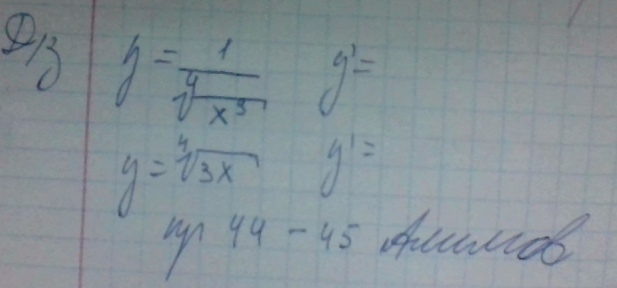 Д/з y = 1/∜x³ y' =
y = ∜3x y' =
пр 44 - 45 Алимов